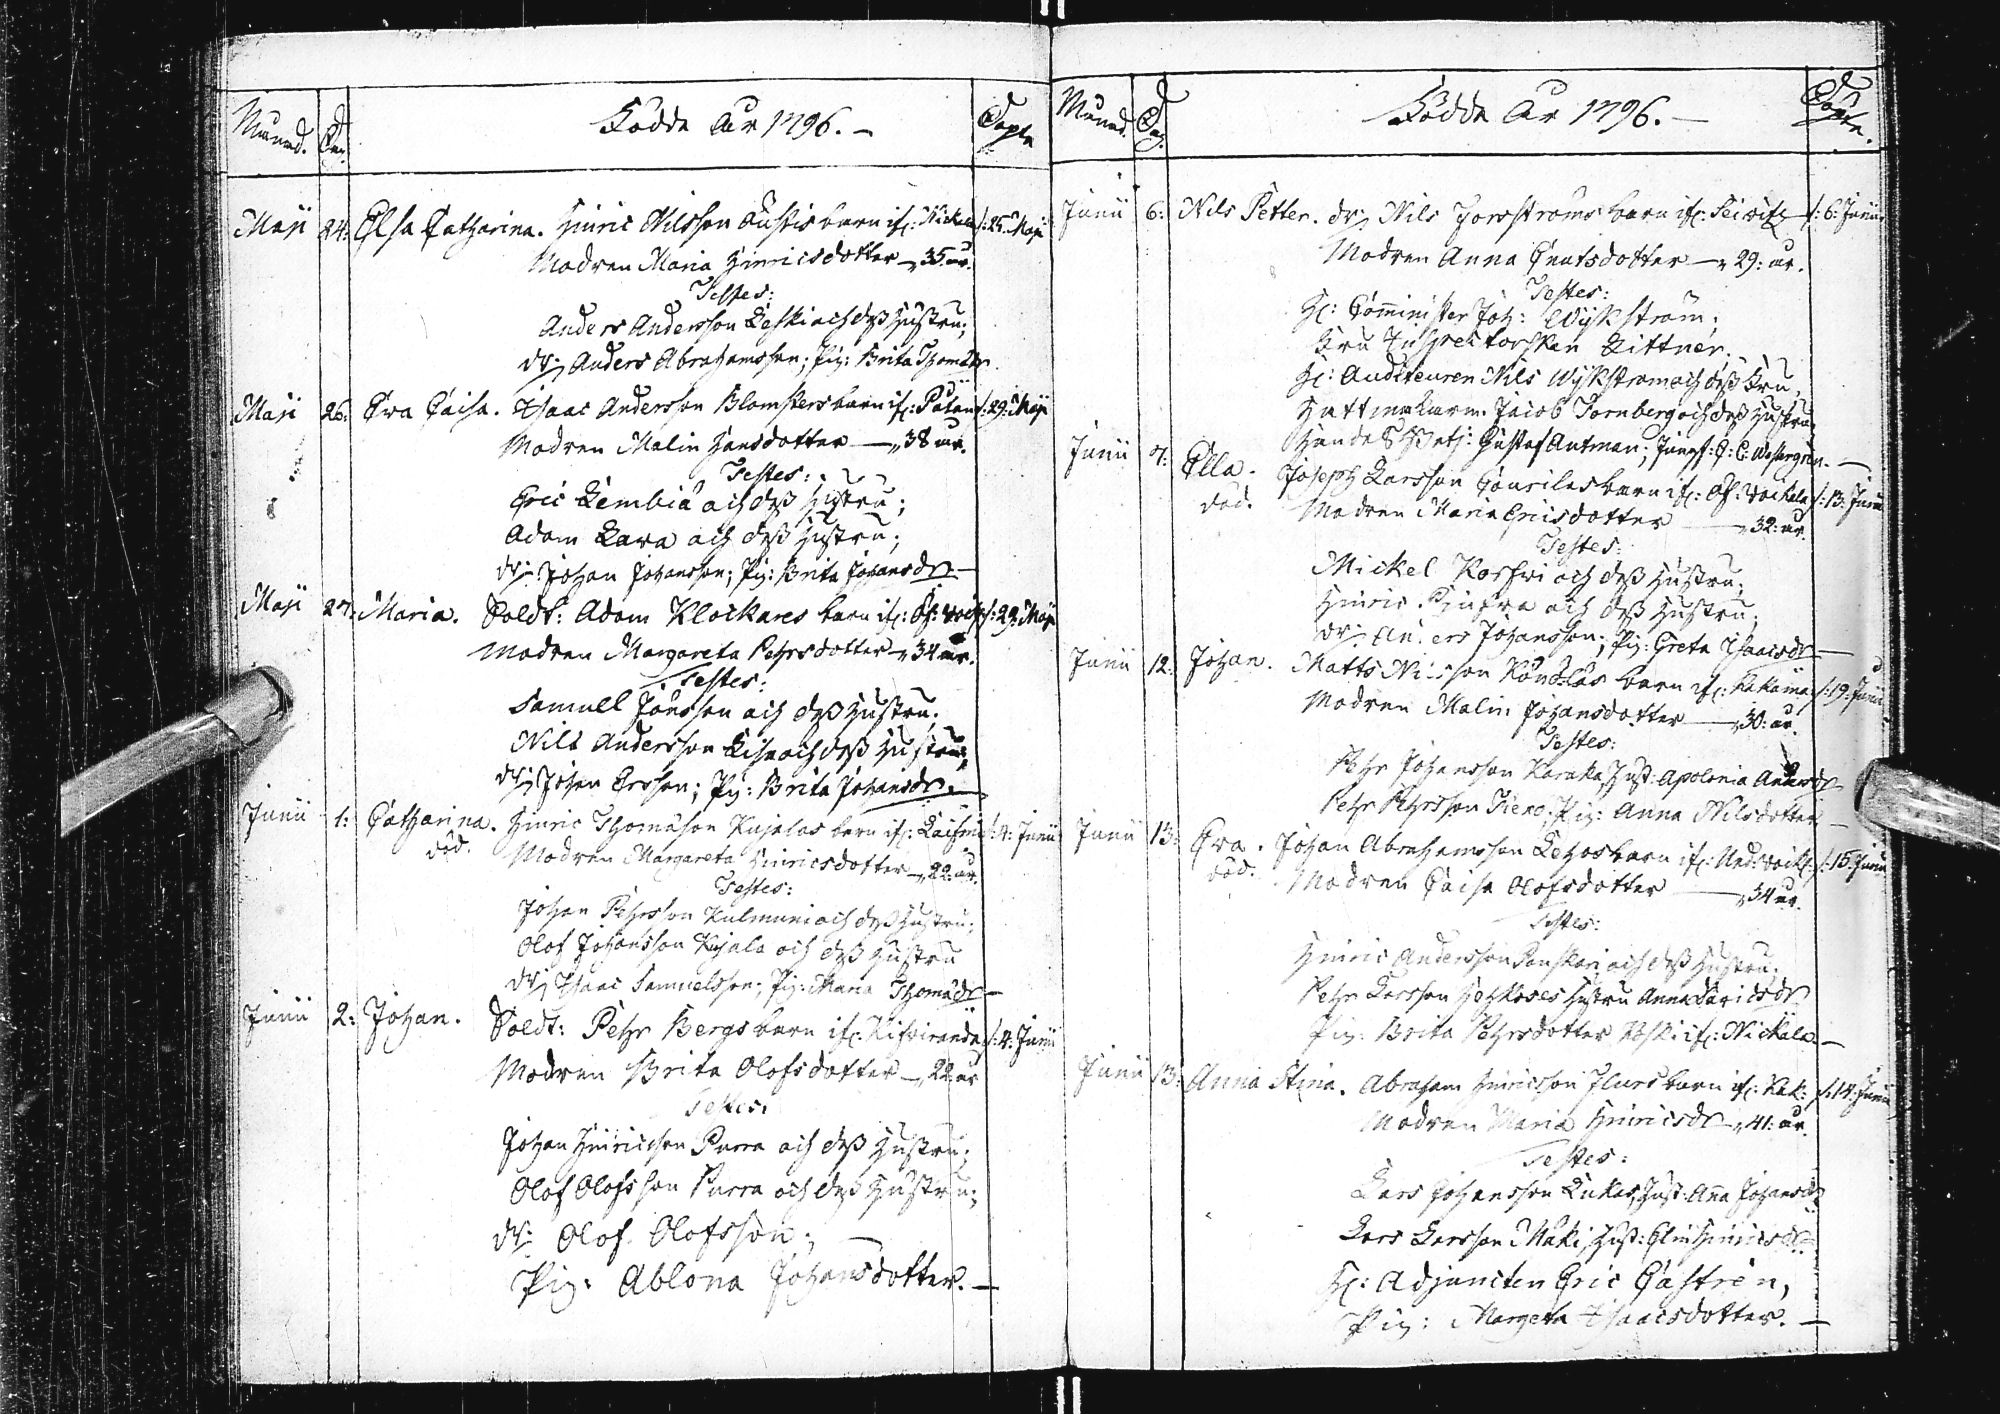 Månad. Dag. Födde År 1796. — Döpte
Maji 24: Elsa Catharina. Hinric Nilsson Kustis barn if: Nickala /: 25. Maji
Modren Maria Hinricsdotter — 35 år.
Testes:
Anders Andersson Leski och dess Hustru;
dr: Anders Abrahamsson; Pig: Brita Thomædr.
Maji 26: Eva Caisa. Isaac Andersson Blomsters barn if: /: 29: Maji
Modren Malin Hansdotter — 38 år.
Testes:
Eric Lembiä och dess Hustru;
Adam Lava och dess Hustru;
dr: Johan Johansson; Pig: Brita Johansdr —
Maji 27: Maria. Soldt: Adam Klockares barn if: Öf: Woick /: 29: Maji
Modren Margareta Pehrsdotter — 34 år.
Testes:
Samuell Jönsson och dess Hustru;
Nils Andersson och dess Hustru;
dr: Johan Ersson; Pig: Brita Johansdr. —
Junii 1: Catharina. Hinric Thomasson Kujalas barn if: /: 4: Junii
död. Modren Margareta Hinricsdotter — 22: år.
Testes:
Johan Pehrsson Kulmuni och dess Hustru;
Olof Johansson Kujala och dess Hustru
dr: Isaac Samuelsson; Pig: Maria Thomædr —
Junii 2: Johan. Soldt: Pehr Bergs barn if: Kifviranda /: 4: Junii
Modren Brita Olofsdotter — 22 år
Testes:
Johan Hinricsson Purra och dess Hustru;
Olof Olofsson Purra och dess Hustru;
dr: Olof Olofsson; —
Pig: Ablona Johansdotter. —
Månad. Dag. Födde År 1796. — Döpte.
Junii 6: Nils Petter. dr: Nils Forsströms barn if: /: 6: Junii
Modren Anna Cnutsdotter — 29: år.
Testes:
H: Comminister Joh: Wijkström;
Fru Inspectorskan Zittner.
H: Auditeuren Nils Wijkström och dess Fru,
Hattmakaren Jacob Tornberg och dess Hustru
Handels Betj: Gustaf Autman; Jungf: C: C: Westergren. —
Junii 7: Ella. Joseph Larsson barn if: Öf: Woickala /: 13: Junii
död. Modren Maria Ericsdotter — 32: år.
Testes:
Mickel Korfwi och dess Hustru;
Hinric och dess Hustru;
dr: Anders Johansson; Pig: Greta Isaacsdr —
Junii 12: Johan. Matts Nilsson barn if: Kakama /: 19: Junii
Modren Malin Johansdotter — 30: år.
Testes:
Pehr Johansson Karaka, Hust: Apolonia Andersdr
Pehr Pehrsson Tiero; Pig: Anna Nilsdotter —
Junii 13: Eva. Johan Abrahamsson Lehos barn if: Ned: Woick: /: 15: Junii
död. Modren Caisa Olofsdotter — 34 år.
Testes:
Hinric Andersson och dess Hustru;
Pehr Larsson Hustru Anna
Pig: Brita Pehrsdotter if: Nickala. —
Junii 13: Anna Stina. Abraham Hinricsson barn if: Kak: /: 14: Junii
Modren Maria Hinricsdr — 41: år.
Testes:
Lars Johansson Lukas, Hust: Anna Johansdr
Lars Larsson Maki, Hust: Elin Hinricsdr
H: Adjuncten Eric Castrén,
Pig: Margeta Isaacsdotter. —